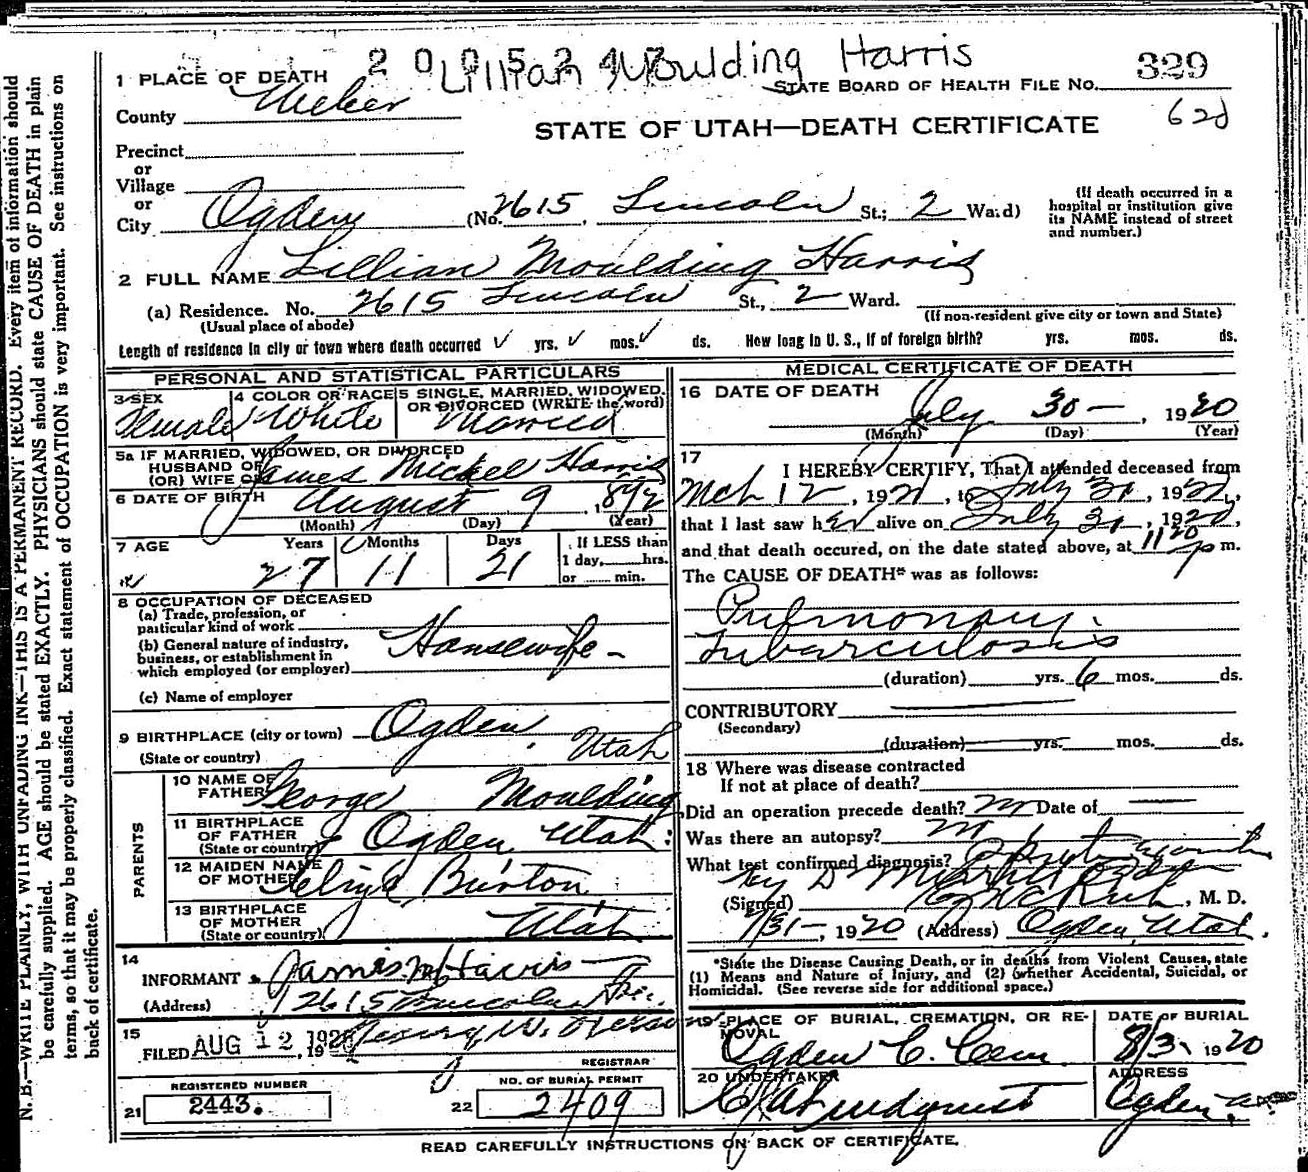 2005247
Lillian Moulding Harris
1 PLACE OF DEATH
STATE BOARD OF HEALTH FILE NO. 329
County Weber
62d
STATE OF UTAH—DEATH CERTIFICATE
Precinct
or
Village
or
City Ogden (No. 2615 Lincoln St.; 2 Ward)
(If death occurred in a
hospital or institution give
its NAME instead of street
and number.)
2 FULL NAME Lillian Moulding Harris
(a) Residence. No. 2615 Lincoln St., 2 Ward.
(Usual place of abode)
(If non-resident give city or town and State)
Length of residence in city or town where death occurred ✓ yrs. ✓ mos. ✓ ds. How long in U. S., if of foreign birth? yrs. mos. ds.
PERSONAL AND STATISTICAL PARTICULARS
3 SEX
Female
4 COLOR OR RACE
White
5 SINGLE, MARRIED, WIDOWED,
OR DIVORCED (WRITE the word)
Married
5a IF MARRIED, WIDOWED, OR DIVORCED
HUSBAND OF
(OR) WIFE OF James Mickel Harris
6 DATE OF BIRTH August 9, 1892
(Month) (Day) (Year)
7 AGE
Years Months Days
27 11 21
If LESS than
1 day, hrs.
or min.
8 OCCUPATION OF DECEASED
(a) Trade, profession, or
particular kind of work
(b) General nature of industry,
business, or establishment in
which employed (or employer)
Housewife -
(c) Name of employer
9 BIRTHPLACE (city or town) Ogden,
(State or country) Utah
PARENTS
10 NAME OF
FATHER George Moulding
11 BIRTHPLACE
OF FATHER
(State or country) Ogden Utah
12 MAIDEN NAME
OF MOTHER Burton
13 BIRTHPLACE
OF MOTHER
(State or country) Utah
14
INFORMANT James M Harris
(Address) 2615 Lincoln Ave.
15
FILED AUG 12 1920, 19
REGISTRAR
REGISTERED NUMBER
21 2443.
NO. OF BURIAL PERMIT
22 2409
MEDICAL CERTIFICATE OF DEATH
16 DATE OF DEATH
July 30 —, 1920
(Month) (Day) (Year)
17
I HEREBY CERTIFY, That I attended deceased from
Mch 12, 192, to July 30, 1920,
that I last saw her alive on July 30, 1920,
and that death occured, on the date stated above, at 11 20 p m.
The CAUSE OF DEATH* was as follows:
Pulmonary
Tubarculosis
(duration) yrs. 6 mos. ds.
CONTRIBUTORY
(Secondary)
(duration) yrs. mos. ds.
18 Where was disease contracted
If not at place of death?
Did an operation precede death? no Date of
Was there an autopsy? no
What test confirmed diagnosis?
(Signed) , M. D.
7/31-, 1920 (Address) Ogden, Utah.
*State the Disease Causing Death, or in deaths from Violent Causes, state
(1) Means and Nature of Injury, and (2) whether Accidental, Suicidal, or
Homicidal. (See reverse side for additional space.)
19 PLACE OF BURIAL, CREMATION, OR RE-
MOVAL
Ogden C. Cem
DATE OF BURIAL
8/3- 1920
20 UNDERTAKER
Lindquist
ADDRESS
Ogden
READ CAREFULLY INSTRUCTIONS ON BACK OF CERTIFICATE.
N. B.—WRITE PLAINLY, WITH UNFADING INK—THIS IS A PERMANENT RECORD. Every item of information should
be carefully supplied. AGE should be stated EXACTLY. PHYSICIANS should state CAUSE OF DEATH in plain
terms, so that it may be properly classified. Exact statement of OCCUPATION is very important. See instructions on
back of certificate.